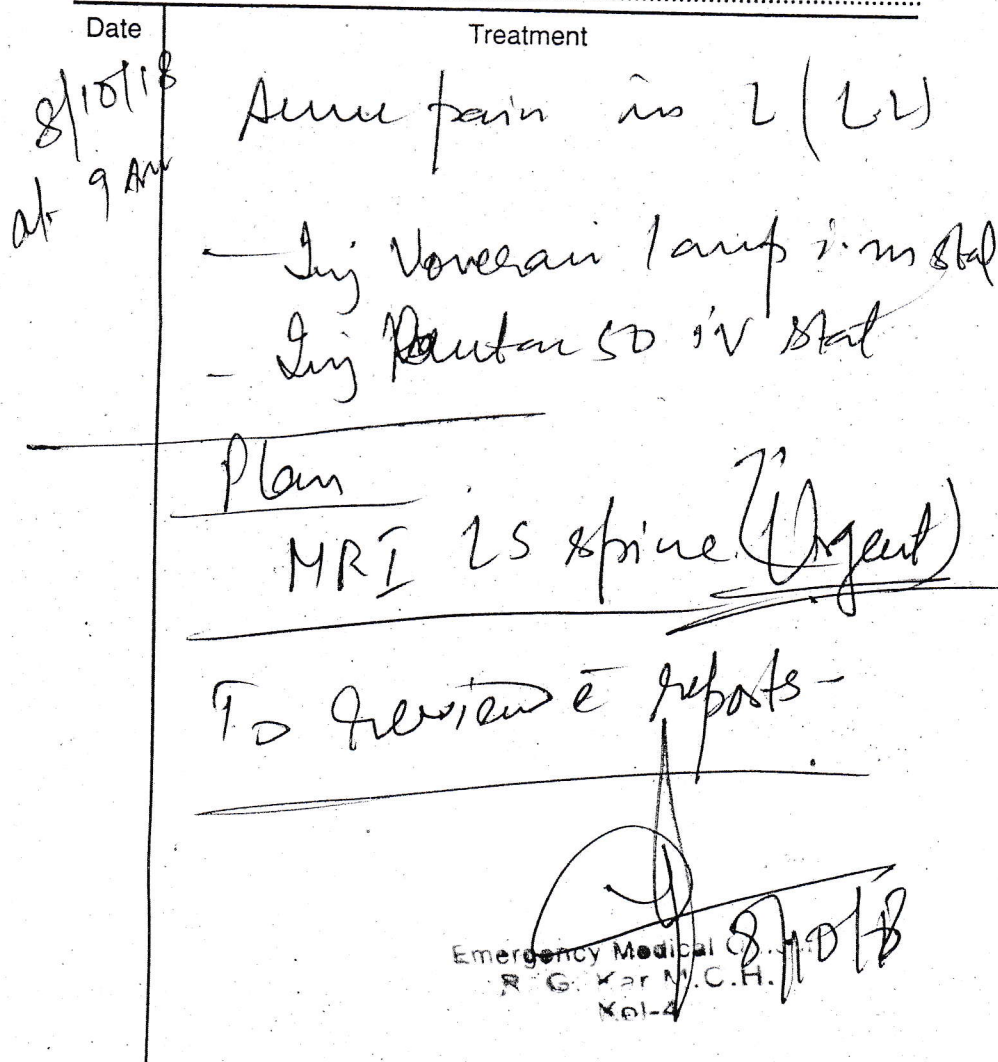 Date Treatment
8/10/18
at 9 AM
pain in L (LL)
- Inj Voveran 1 amp i.m stat
- Inj Pantan 50 iV stat
Plan
MRI LS spine (Urgent)
To review c̄ reports-
8/10/18
Emergency Medical
R. G. Kar M.C.H.
Kol-4